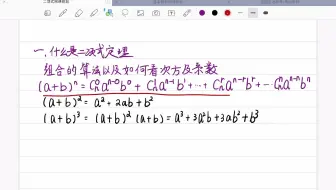 一.什么是二项式定理
组合的算法以及如何看次方及系数
(a+b)ⁿ = Cₙ⁰aⁿ⁻⁰b⁰ + Cₙ¹aⁿ⁻¹b¹ + … + Cₙʳaⁿ⁻ʳbʳ + … Cₙⁿaⁿ⁻ⁿbⁿ
(a+b)² = a² + 2ab + b²
(a+b)³ = (a+b)² (a+b) = a³ + 3a²b + 3ab² + b³